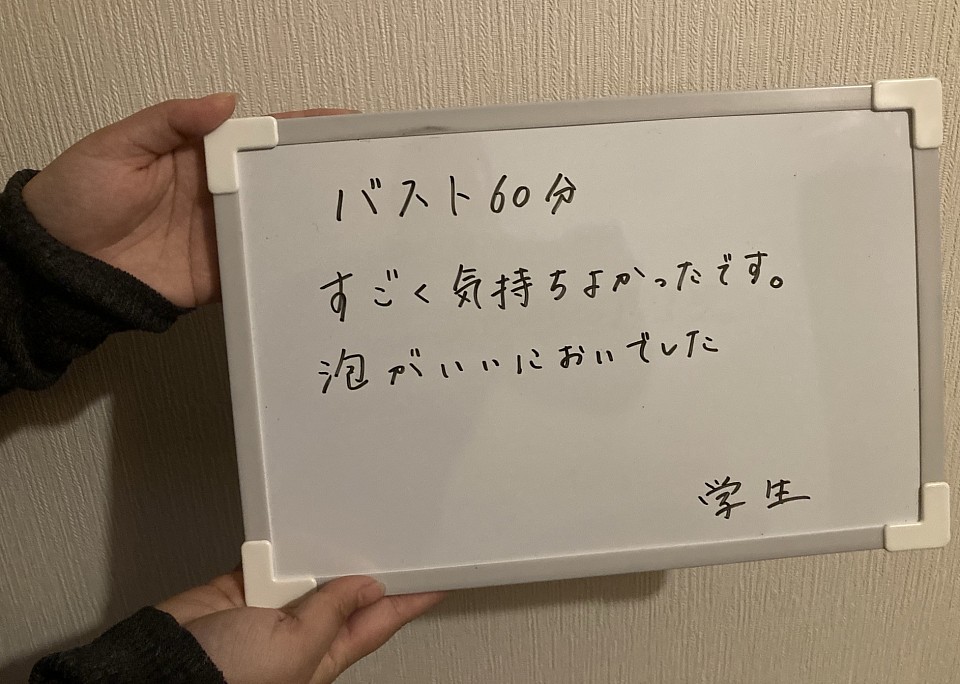 バスト60分
すごく気持ちよかったです。
泡がいいにおいでした
学生